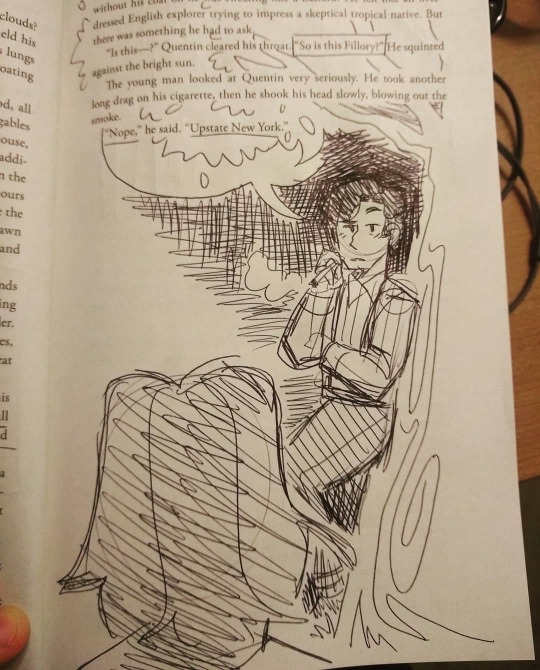 clouds?
eld his
s lungs
oating
od, all
gables
ouse,
addi-
n the
ours
e the
awn
and
nds
ing
ler.
es,
eat
his
ll
d
a
without his
dressed English explorer trying to impress a skeptical tropical native. But
there was something he had to ask.
"Is this—?" Quentin cleared his throat. "So is this Fillory?" He squinted
against the bright sun.
The young man looked at Quentin very seriously. He took another
long drag on his cigarette, then he shook his head slowly, blowing out the
smoke.
"Nope," he said. "Upstate New York."